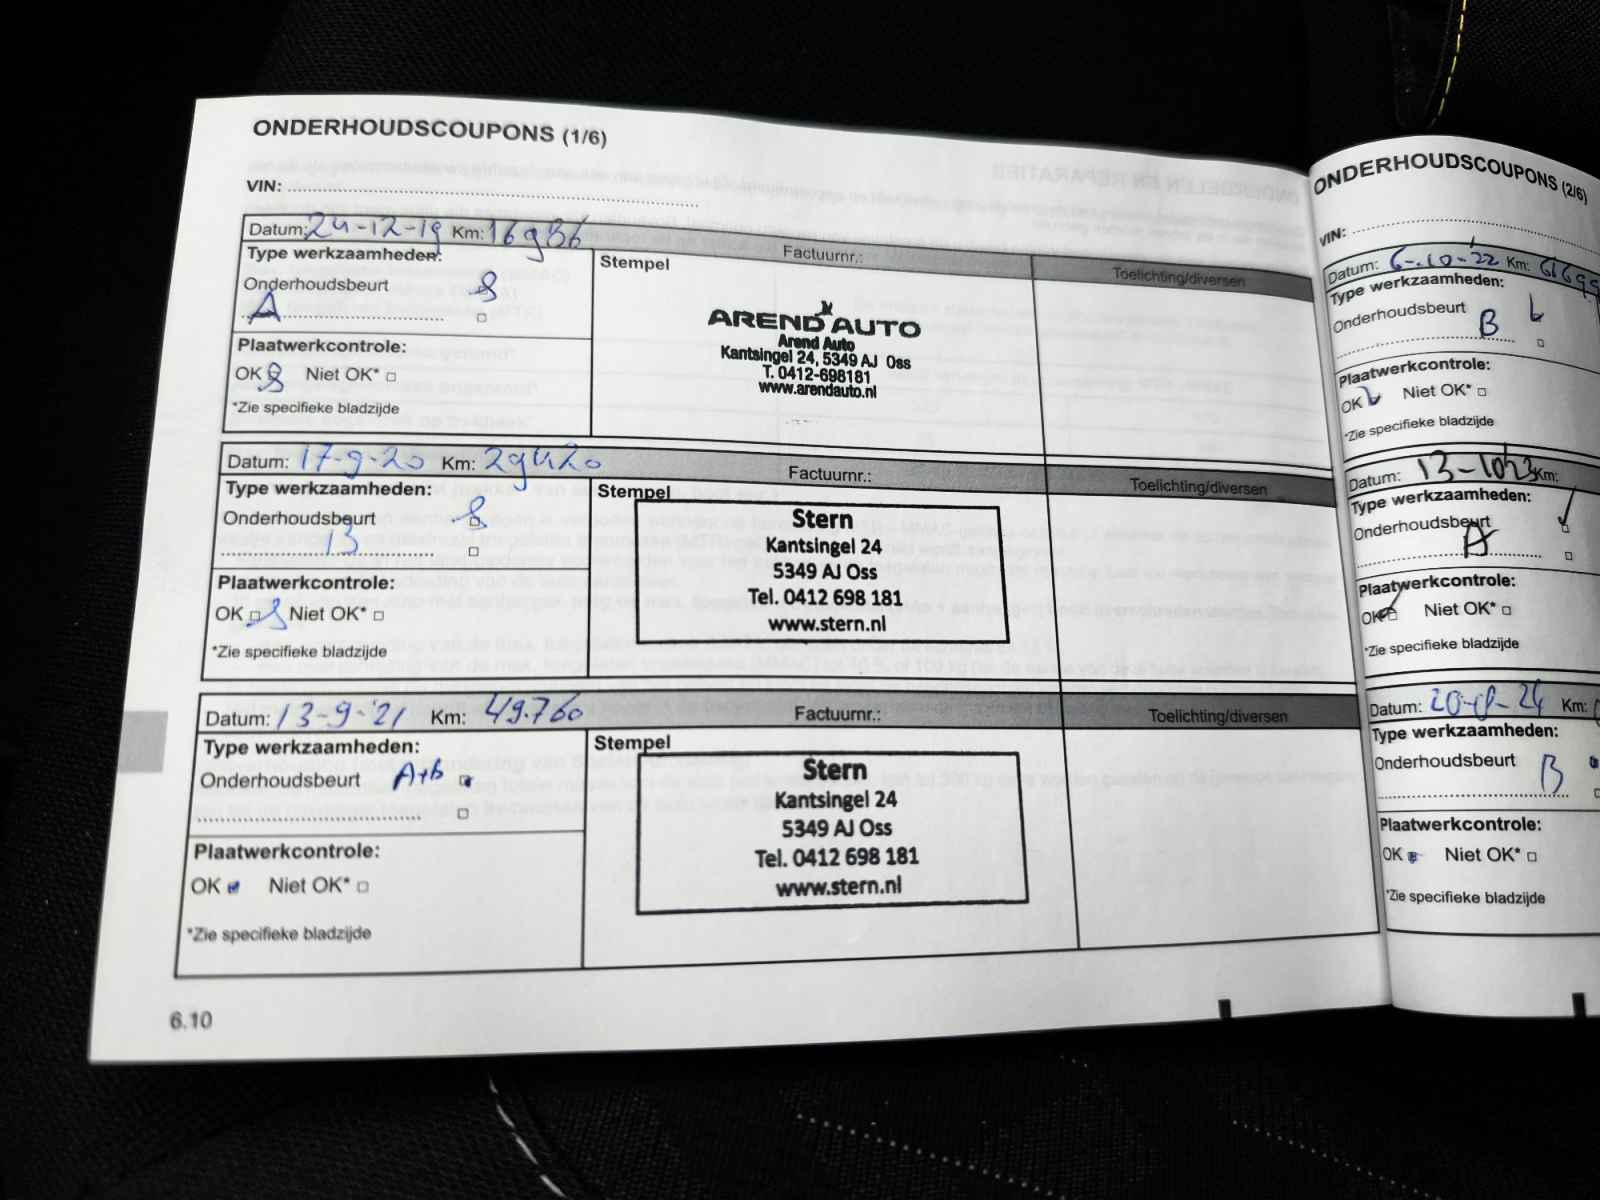 ONDERHOUDSCOUPONS (1/6)
VIN:
Datum: 24-12-19 Km: 16936
Factuurnr.:
Toelichting/diversen
Type werkzaamheden:
Stempel
Onderhoudsbeurt
A
Plaatwerkcontrole:
OK Niet OK*
*Zie specifieke bladzijde
AREND AUTO
Arend Auto
Kantsingel 24, 5349 AJ Oss
T. 0412-698181
www.arendauto.nl
Datum: 17-9-20 Km: 29420
Factuurnr.:
Toelichting/diversen
Type werkzaamheden:
Stempel
Onderhoudsbeurt
B
Plaatwerkcontrole:
OK Niet OK*
*Zie specifieke bladzijde
Stern
Kantsingel 24
5349 AJ Oss
Tel. 0412 698 181
www.stern.nl
Datum: 13-9-'21 Km: 49.760
Factuurnr.:
Toelichting/diversen
Type werkzaamheden:
Stempel
Onderhoudsbeurt A+b
Plaatwerkcontrole:
OK Niet OK*
*Zie specifieke bladzijde
Stern
Kantsingel 24
5349 AJ Oss
Tel. 0412 698 181
www.stern.nl
6.10
ONDERHOUDSCOUPONS (2/6)
VIN:
Datum: 6-10-'22 Km:
Type werkzaamheden:
Onderhoudsbeurt
B
Plaatwerkcontrole:
OK Niet OK*
*Zie specifieke bladzijde
Datum: 13-10'23 Km:
Type werkzaamheden:
Onderhoudsbeurt
A
Plaatwerkcontrole:
OK Niet OK*
*Zie specifieke bladzijde
Datum: Km:
Type werkzaamheden:
Onderhoudsbeurt
B
Plaatwerkcontrole:
OK Niet OK*
*Zie specifieke bladzijde